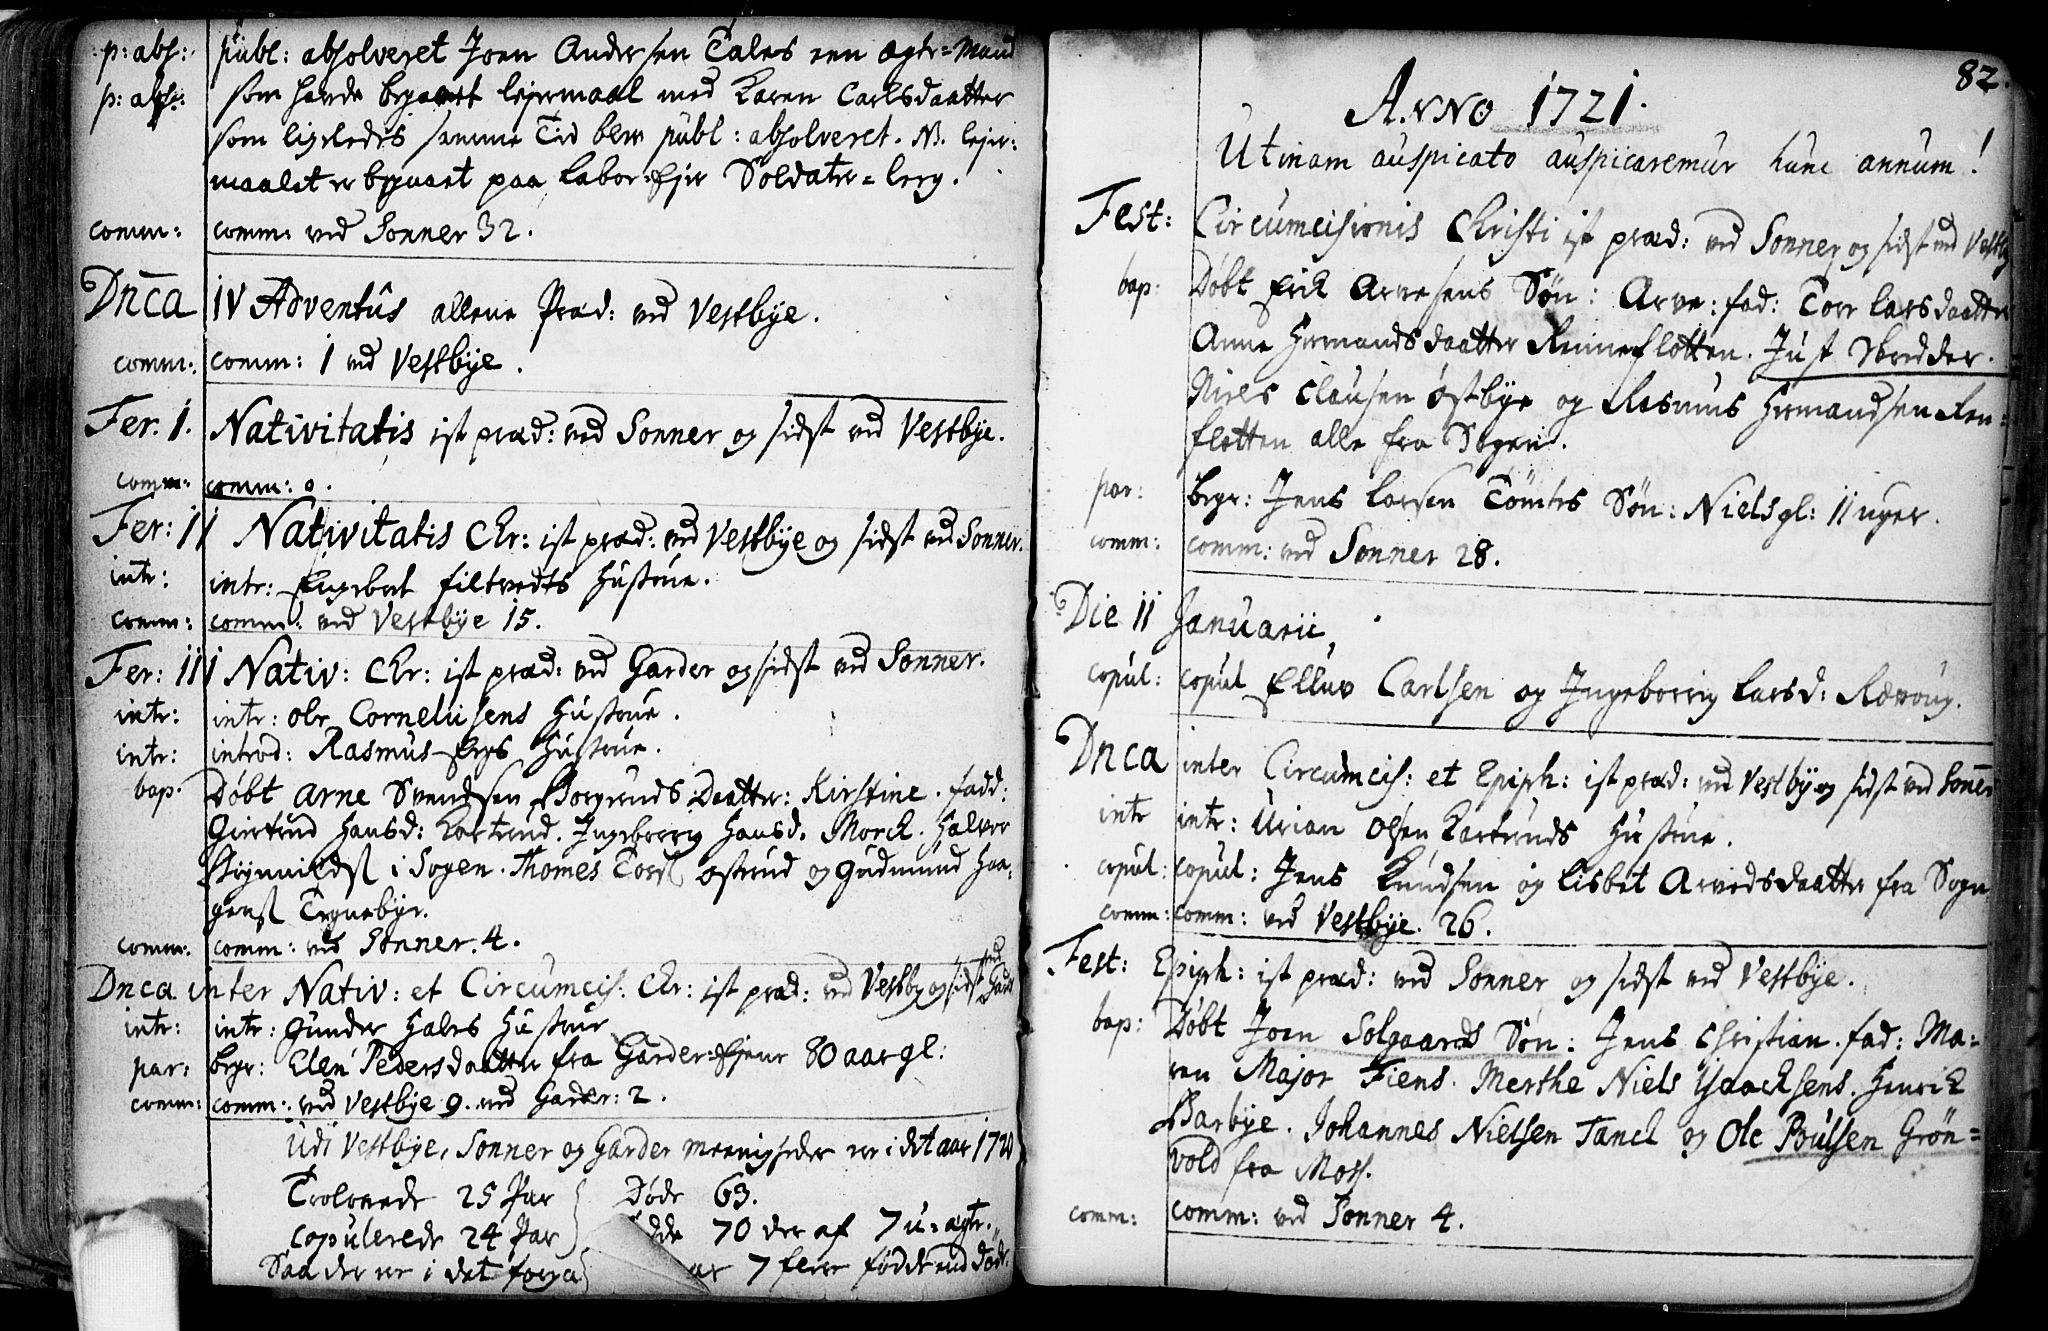 p: abs: publ: absolveret Joen Andersen Tales een ægte=Mand
p: abs: som hafde begaaet lejermaal med Karen Carlsdaatter
som ligeledes samme Tid blev publ: absolveret. NB. lejer:
maalet er begaaet paa Soldater=leeg.
comm: comm: ved Sonner 32.
Dnca IV Adventûs allene Præd: ved Vestbye.
comm: comm: 1 ved Vestbye.
Fer. 1. Nativitatis ist præd: ved Sonner og sidst ved Vestbye.
comm: comm: 0.
Fer: 11 Nativitatis Chr: ist præd: ved Vestbye og sidst ved Sonner.
intr: intr: Engebret filtvedts Hustrue.
comm: comm: ved Vestbye 15.
Fer: 111 Nativ: Chr: ist præd: ved Garder og sidst ved Sonner.
intr: intr: Ole Corneliisens Hustrue.
intr: introd: Rasmus Hustrue.
bap. Døbt Arne Svendsen Borgeruds Daatter: Kirstine. fadd:
Giertrud Hansd: Kartrud. Ingeborrig Hansd. Morck. Halvor
i Sogen. Thomes Østrud og Gudmund Haa,
gens Tegnebye.
comm: comm: ved Sonner. 4.
Dnca inter Nativ: et Circumcis: Chr: ist præd: ved Vestby og sidst ved Gard
intr: intr: Gunder Hales Hustrue
par: begr: Elen Pedersdaatter fra Garder 80 aar gl:
comm: comm: ved Vestbye 9. ved Garder: 2.
Udi Vestbye, Sonner og Garder Meenigheder er i det aar 1720
Trolovede 25 Par Døde 63.
Copulerede 24 Par 70 der af 7 u=ægte.
Saa der er i det 7 fleer fødde end Døde.
82.
Anno 1721.
Utinam auspicato auspicaremur hunc annum!
Fest: Circumcisionis Christi ist præd: ved Sonner og sidst ved Vestby
bap: Døbt Erik Arvesens Søn: Arve: fad: Tore Larsdaatter
Anne Hermandsdaatter Renneflotten. Just Skredder.
Niels Clausen Østbye og Rasmus Hermandsen Ren=
flotten alle fra Sogen.
par: begr: Jens Larsen Tømtes Søn: Niels gl: 11 uger.
comm: comm: ved Sonner 28.
Die 11 Januarii,
copul: copul Elluv Carlsen og Ingeborrig Larsd:
Dnca inter Circumcis: et Epiph: ist præd: ved Vestby og sidst ved Soner
intr intr: Urian Olsen Karteruds Hustrue.
copul: copul: Jens Knudsen og Lisbet Arvedsdaatter fra Sogn
comm: comm: ved Vestbye. 26.
Fest: Epiph: ist præd: ved Sonner og sidst ved Vestbye.
bap: Døbt Joen Solgaards Søn: Jens Christian. fad: Ma=
ren Major Fiens. Merthe Niels Ysaachsens. Henrik
Barbye. Johannes Nielsen Tanel og Ole Poulsen Grøn=
vold fra Moss.
comm: comm: ved Sonner 4.